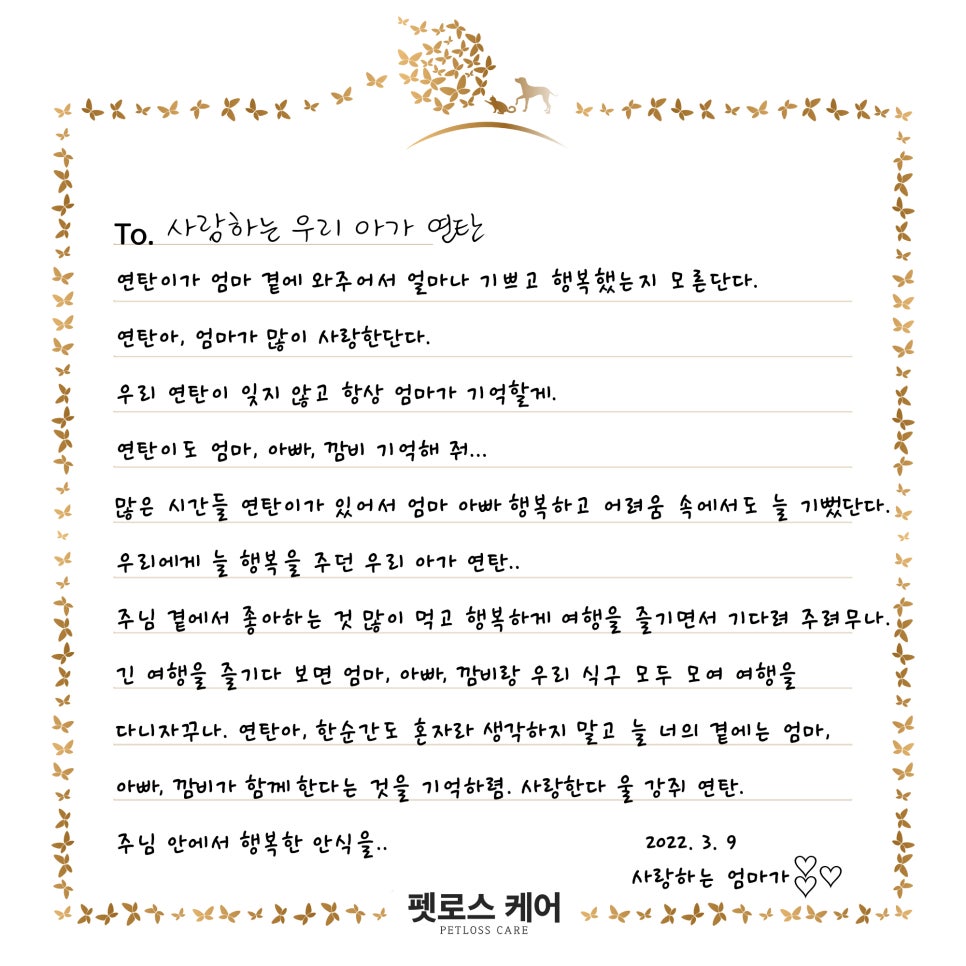 To. 사랑하는 우리 아가 연탄
연탄이가 엄마 곁에 와주어서 얼마나 기쁘고 행복했는지 모른단다.
연탄아, 엄마가 많이 사랑한단다.
우리 연탄이 잊지 않고 항상 엄마가 기억할게.
연탄이도 엄마, 아빠, 깜비 기억해 줘...
많은 시간들 연탄이가 있어서 엄마 아빠 행복하고 어려움 속에서도 늘 기뻤단다.
우리에게 늘 행복을 주던 우리 아가 연탄..
주님 곁에서 좋아하는 것 많이 먹고 행복하게 여행을 즐기면서 기다려 주려무나.
긴 여행을 즐기다 보면 엄마, 아빠, 깜비랑 우리 식구 모두 모여 여행을
다니자꾸나. 연탄아, 한순간도 혼자라 생각하지 말고 늘 너의 곁에는 엄마,
아빠, 깜비가 함께한다는 것을 기억하렴. 사랑한다 울 강쥐 연탄.
주님 안에서 행복한 안식을..
2022. 3. 9
사랑하는 엄마가♡♡♡
펫로스 케어
PETLOSS CARE